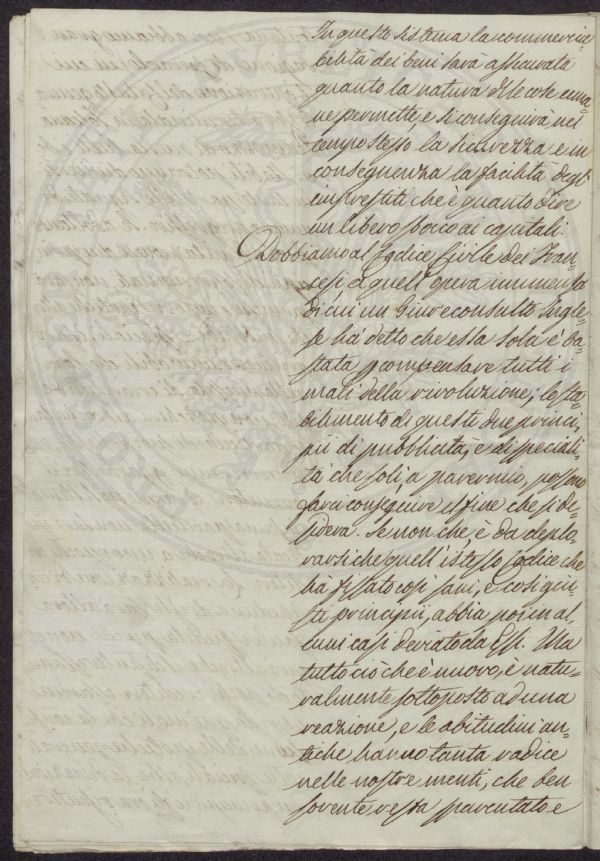 In questo sistema la commercia=
bilità dei beni sarà assicurata
quanto la natura delle cose uma=
ne permette, e si conseguirà nel
tempo stesso la sicurezza e in
conseguenza la facilità degl'
imprestiti che è quanto dire
un libero sbocco ai capitali.
Dobbiamo al Codice Civile dei Fran=
cesi a quell'opera immensa
di cui un Giureconsulto Ingle=
se ha detto che essa sola è ba=
stata p compensare tutti i
mali della rivoluzione; lo sta=
bilimento di questi due princi=
pii di pubblicità, e di speciali=
tà che soli, a parer mio, possono
farci conseguire il fine che si de=
sidera. Se non che, è da deplo=
rarsi che quell'istesso Codice che
ha fissato così sani, e così giu=
sti principii, abbia poi in al=
cuni casi deviato da essi. Ma
tutto ciò che è nuovo, è natu=
ralmente sottoposto ad una
reazione, e le abitudini an=
tiche hanno tanta radice
nelle nostre menti, che ben
sovente resta spaventato e